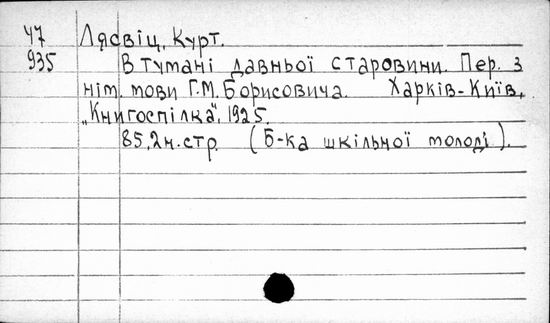 У7 Лясвіц, Курт.
935 В тумані давньої старовини. Пер. з
нім. мови Г.М. Борисовича. Харків-Київ,
„Книгоспілка", 1925.
85,2н.стр. (Б-ка шкільної молоді).